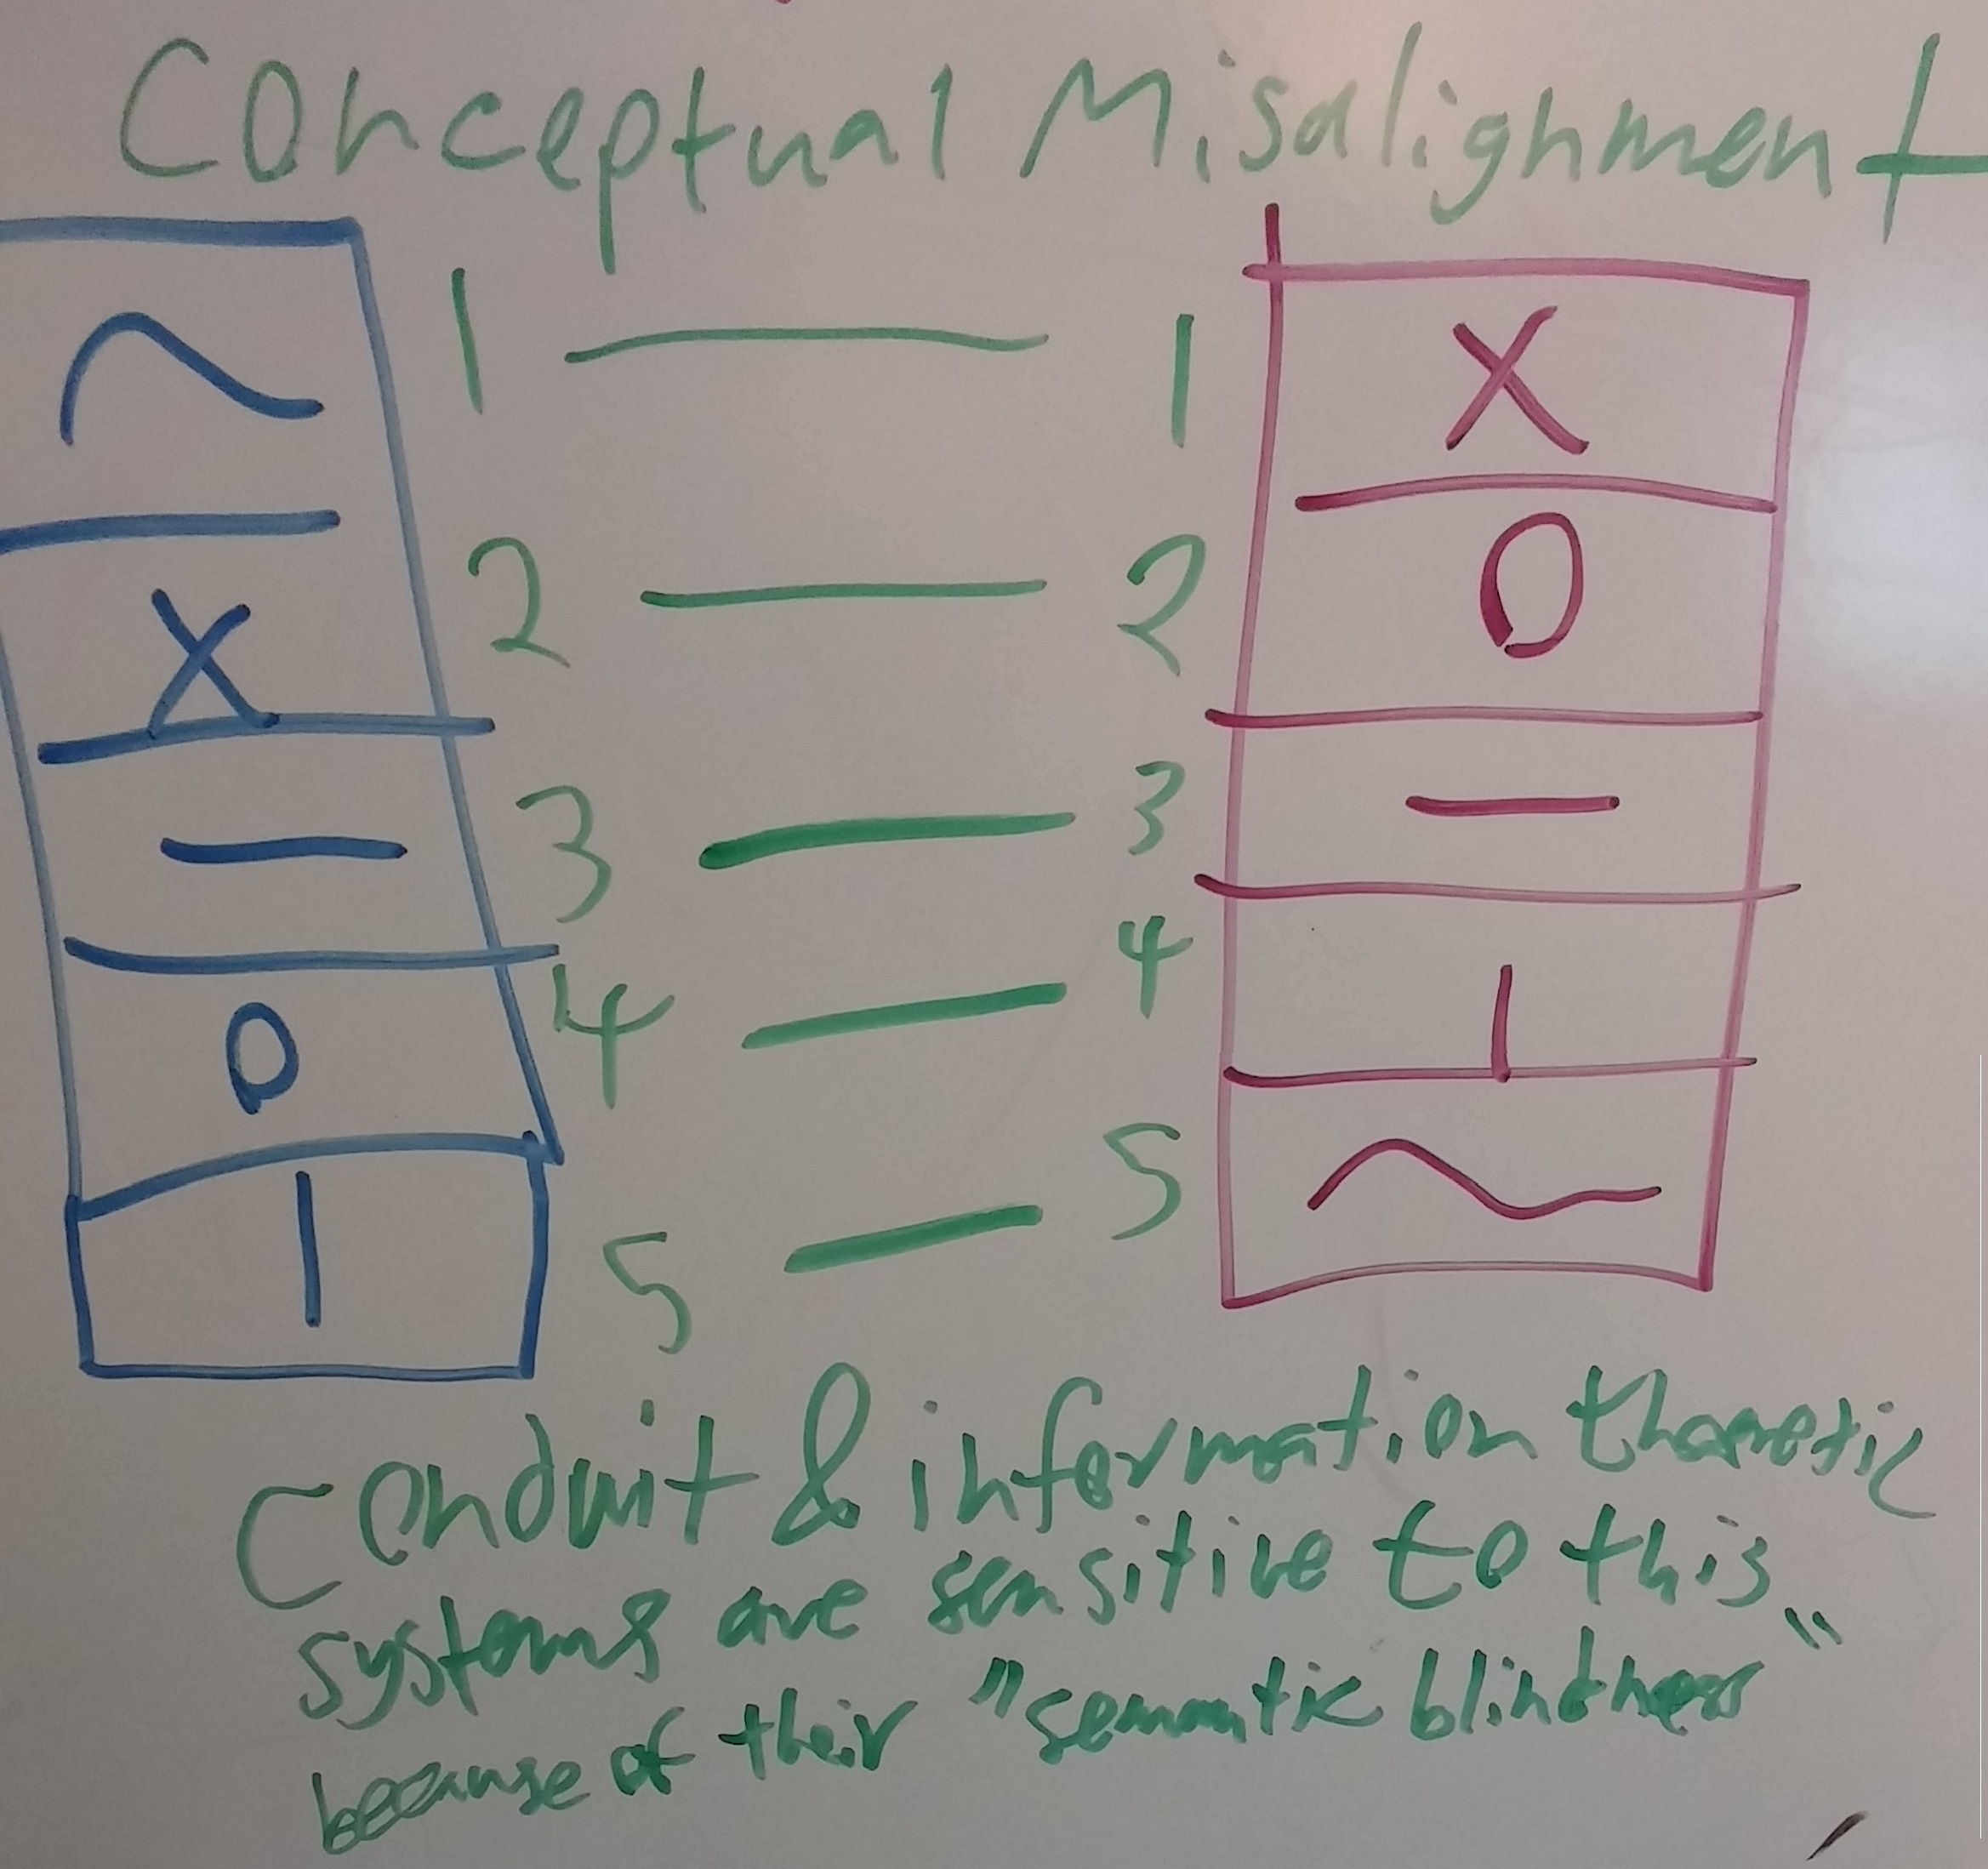 Conceptual Misalignment
1 1 X
2 2 O
X
3 3
4 4
O
5 5
Conduit & information theoretic
systems are sensitive to this
because of their "semantic blindness"